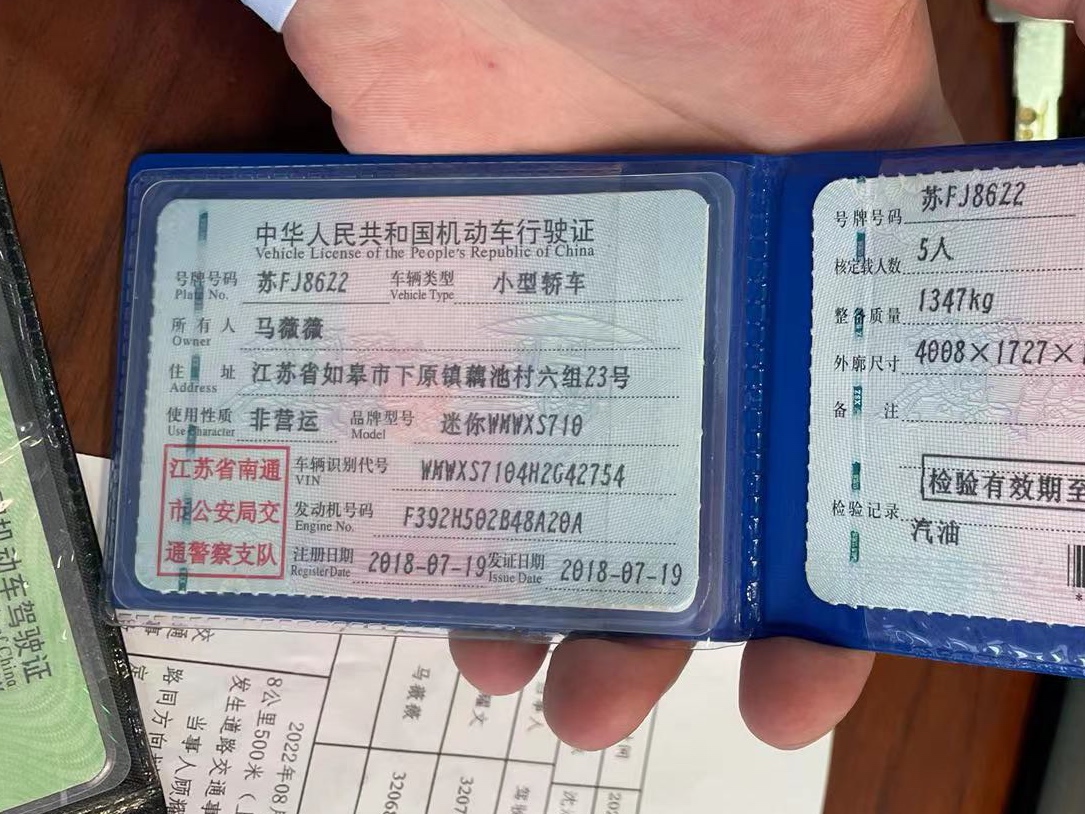 中华人民共和国机动车行驶证
Vehicle License of the People's Republic of China
号牌号码 苏FJ86Z2 车辆类型 小型轿车
Plate No. Vehicle Type
所有人 马薇薇
Owner
住址 江苏省如皋市下原镇藕池村六组23号
Address
使用性质 非营运 品牌型号 迷你WMWXS710
Use Character Model
江苏省南通
市公安局交
通警察支队
车辆识别代号 WMWXS7104H2G42754
VIN
发动机号码 F392H502B48A20A
Engine No.
注册日期 2018-07-19 发证日期 2018-07-19
Register Date Issue Date
号牌号码 苏FJ86Z2
核定载人数 5人
整备质量 1347kg
外廓尺寸 4008×1727×
备注
检验有效期至
检验记录
汽油
机动车驾驶证
马薇薇
3206
3207
2022年08
8公里500米
发生道路交通事
当事人顾
路同方向